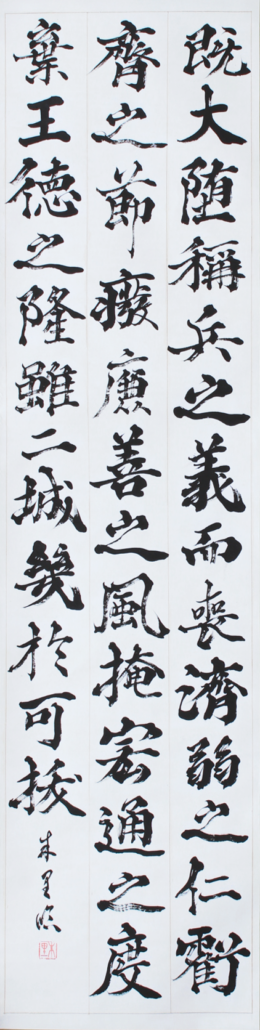 既大堕稱兵之義而喪濟弱之仁虧
齊之節廢廉善之風掩宏通之度
棄王德之隆雖二城幾於可拔